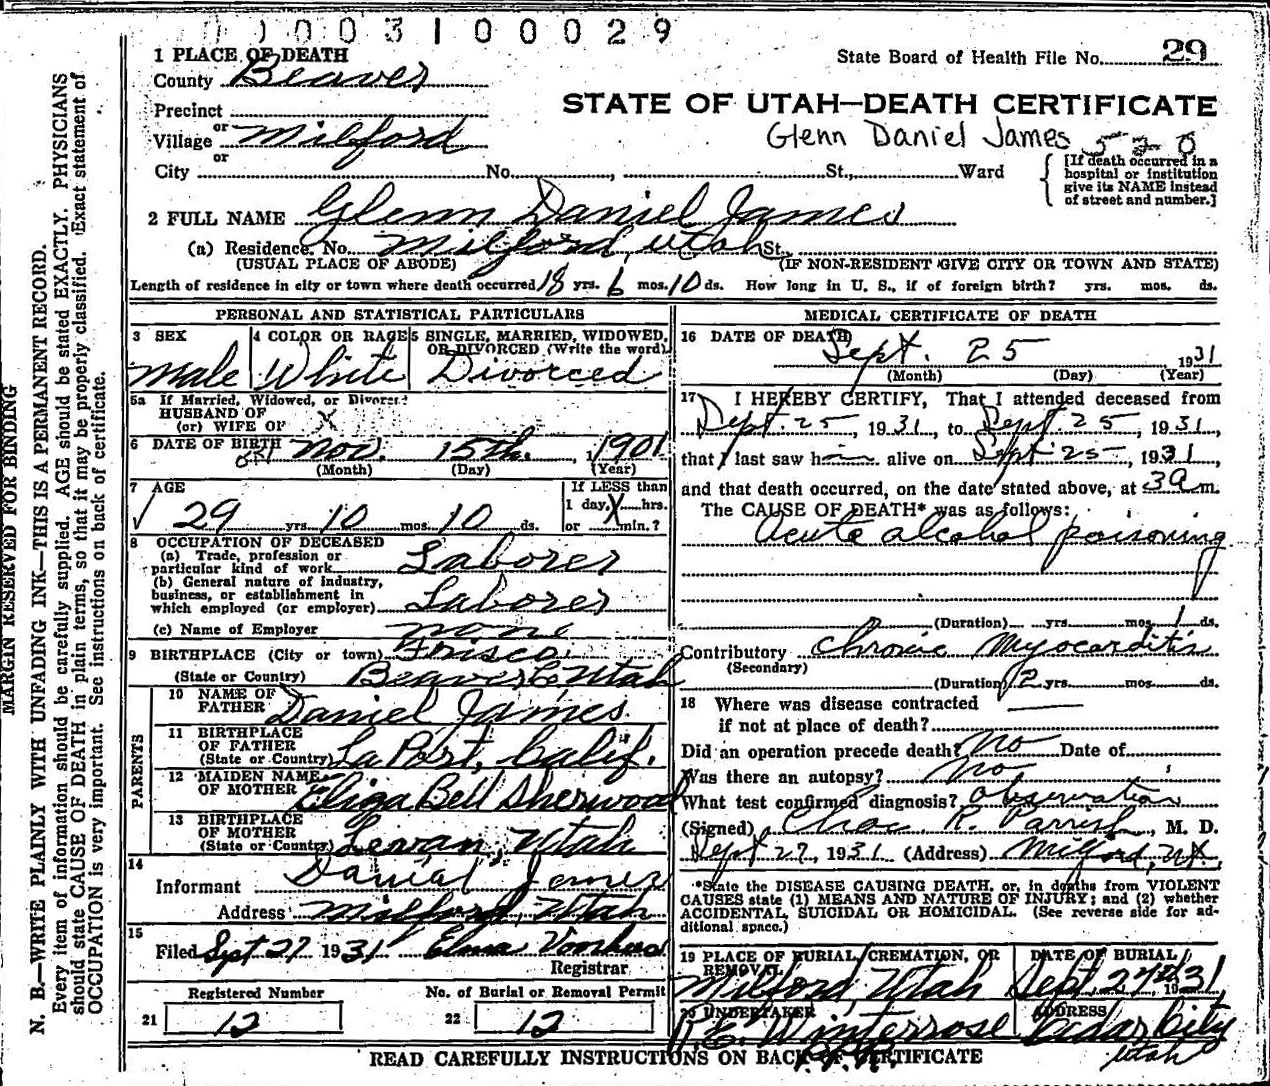 0 0 0 0 3 1 0 0 0 2 9
1 PLACE OF DEATH
State Board of Health File No. 29
County Beaver
STATE OF UTAH—DEATH CERTIFICATE
Precinct
or
Village Milford
Glenn Daniel James
or
City No. , St., Ward
[If death occurred in a
hospital or institution
give its NAME instead
of street and number.]
2 FULL NAME Glenn Daniel James
(a) Residence, No. Milford, Utah St.
(USUAL PLACE OF ABODE) (IF NON-RESIDENT GIVE CITY OR TOWN AND STATE)
Length of residence in city or town where death occurred 18 yrs. 6 mos. 10 ds. How long in U. S., if of foreign birth? yrs. mos. ds.
PERSONAL AND STATISTICAL PARTICULARS
3 SEX
Male
4 COLOR OR RACE
White
5 SINGLE, MARRIED, WIDOWED,
OR DIVORCED (Write the word)
Divorced
5a If Married, Widowed, or Divorced
HUSBAND OF
(or) WIFE OF X
6 DATE OF BIRTH Nov. 15th. 1901
(Month) (Day) (Year)
7 AGE
29 yrs. 10 mos. 10 ds.
If LESS than
1 day, X hrs.
or min.?
8 OCCUPATION OF DECEASED
(a) Trade, profession or
particular kind of work Laborer
(b) General nature of industry,
business, or establishment in
which employed (or employer) Laborer
(c) Name of Employer none
9 BIRTHPLACE (City or town) Frisco
(State or Country) Beaver Co Utah
PARENTS
10 NAME OF
FATHER Daniel James
11 BIRTHPLACE
OF FATHER
(State or Country) La Port, Calif.
12 MAIDEN NAME
OF MOTHER Eliza Bell Sherwood
13 BIRTHPLACE
OF MOTHER
(State or Country) Levan, Utah
14
Informant Daniel James
Address Milford, Utah
15
Filed Sept 27 1931 Elma Voorhees
Registrar
Registered Number
21 12
No. of Burial or Removal Permit
22 12
MEDICAL CERTIFICATE OF DEATH
16 DATE OF DEATH
Sept. 25 1931
(Month) (Day) (Year)
17 I HEREBY CERTIFY, That I attended deceased from
Sept. 25, 1931, to Sept 25, 1931,
that I last saw him alive on Sept 25, 1931,
and that death occurred, on the date stated above, at 3 a m.
The CAUSE OF DEATH* was as follows:
Acute alcohol poisoning
(Duration) yrs. mos. 1 ds.
Contributory Chronic Myocarditis
(Secondary)
(Duration) 2 yrs. mos. ds.
18 Where was disease contracted
if not at place of death?
Did an operation precede death? No Date of
Was there an autopsy? No
What test confirmed diagnosis? Observation
(Signed) Chas. R. Parrish, M. D.
Sept 27, 1931 (Address) Milford, Ut,
*State the DISEASE CAUSING DEATH, or, in deaths from VIOLENT
CAUSES state (1) MEANS AND NATURE OF INJURY; and (2) whether
ACCIDENTAL, SUICIDAL OR HOMICIDAL. (See reverse side for ad-
ditional space.)
19 PLACE OF BURIAL, CREMATION, OR
REMOVAL
Milford, Utah
DATE OF BURIAL
Sept. 27 1931
20 UNDERTAKER
Winterrose
ADDRESS
Cedar City
Utah
READ CAREFULLY INSTRUCTIONS ON BACK OF CERTIFICATE
MARGIN RESERVED FOR BINDING
N. B.—WRITE PLAINLY WITH UNFADING INK—THIS IS A PERMANENT RECORD.
Every item of information should be carefully supplied. AGE should be stated EXACTLY. PHYSICIANS
should state CAUSE OF DEATH in plain terms, so that it may be properly classified. Exact statement of
OCCUPATION is very important. See instructions on back of certificate.